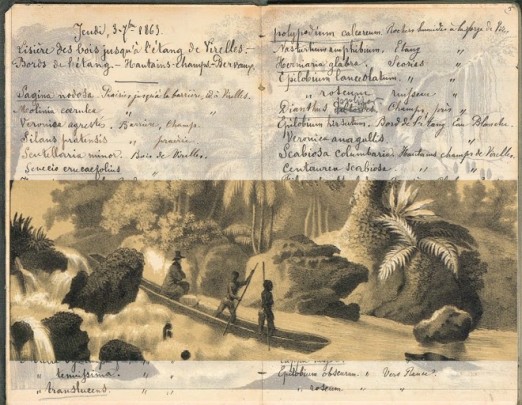 Jeudi, 3-7bre 1863.
Lisière des bois jusqu'à l'étang de Virelles.-
Bords de l'étang - Hautains-Champs-Dervaux,
Sagina nodosa. Prairie, jusqu'à la barrière, à Virelles.
Molinia cœrulea " "
Veronica agrestis. Barrière, Champs.
Silaus pratensis " prairie.
Scutellaria minor. Bois de Virelles.
Senecio erucaefolius " "
" tenuissima. " "
" translucens. " "
polypodium calcareum. Rochers humides à la forge de
Nasturtium amphibium. Etang "
Herniaria glabra. Scories "
Epilobium lanceolatum. " "
" roseum ruisseau "
Dianthus Champs, près "
Epilobium hirsutum. Bord de l'étang, Eau Blanche.
Veronica anagallis. " "
Scabiosa columbaria. Hautains champs de Virelles.
Centaurea scabiosa. " "
Epilobium obscurum. Vers
" roseum " "